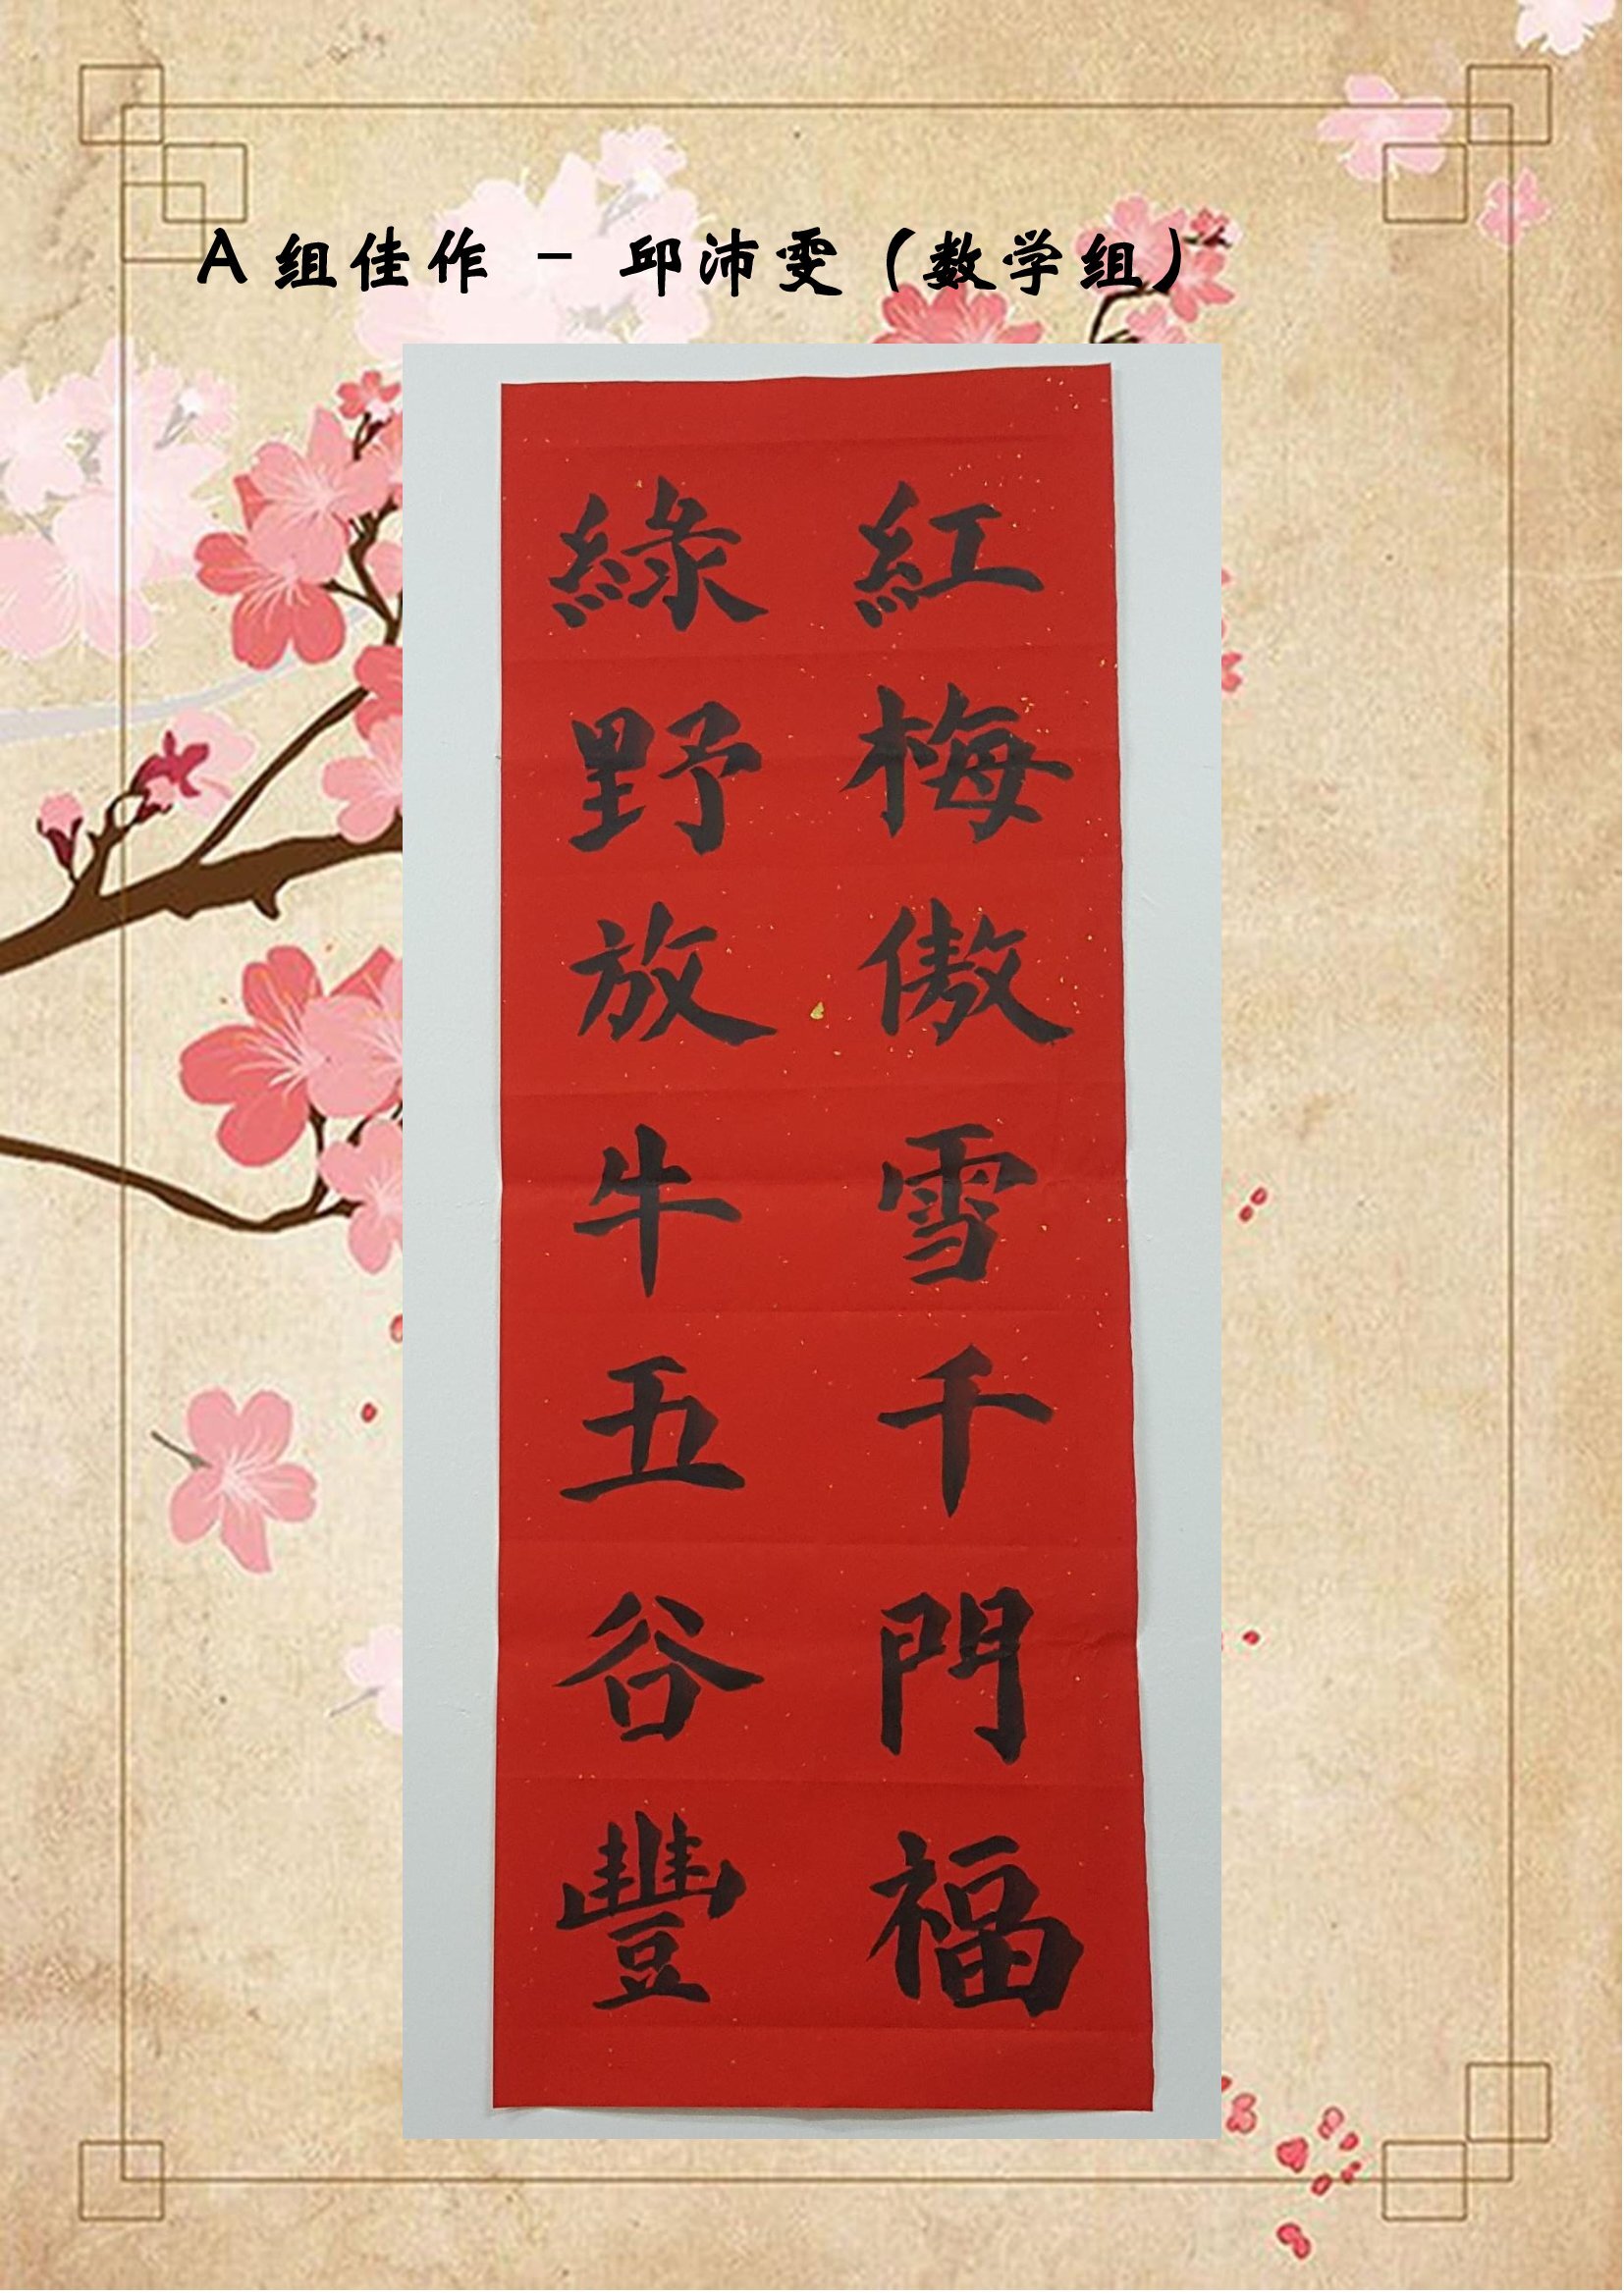 A 组佳作 - 邱沛雯（数学组）
紅梅傲雪千門福
綠野放牛五谷豐